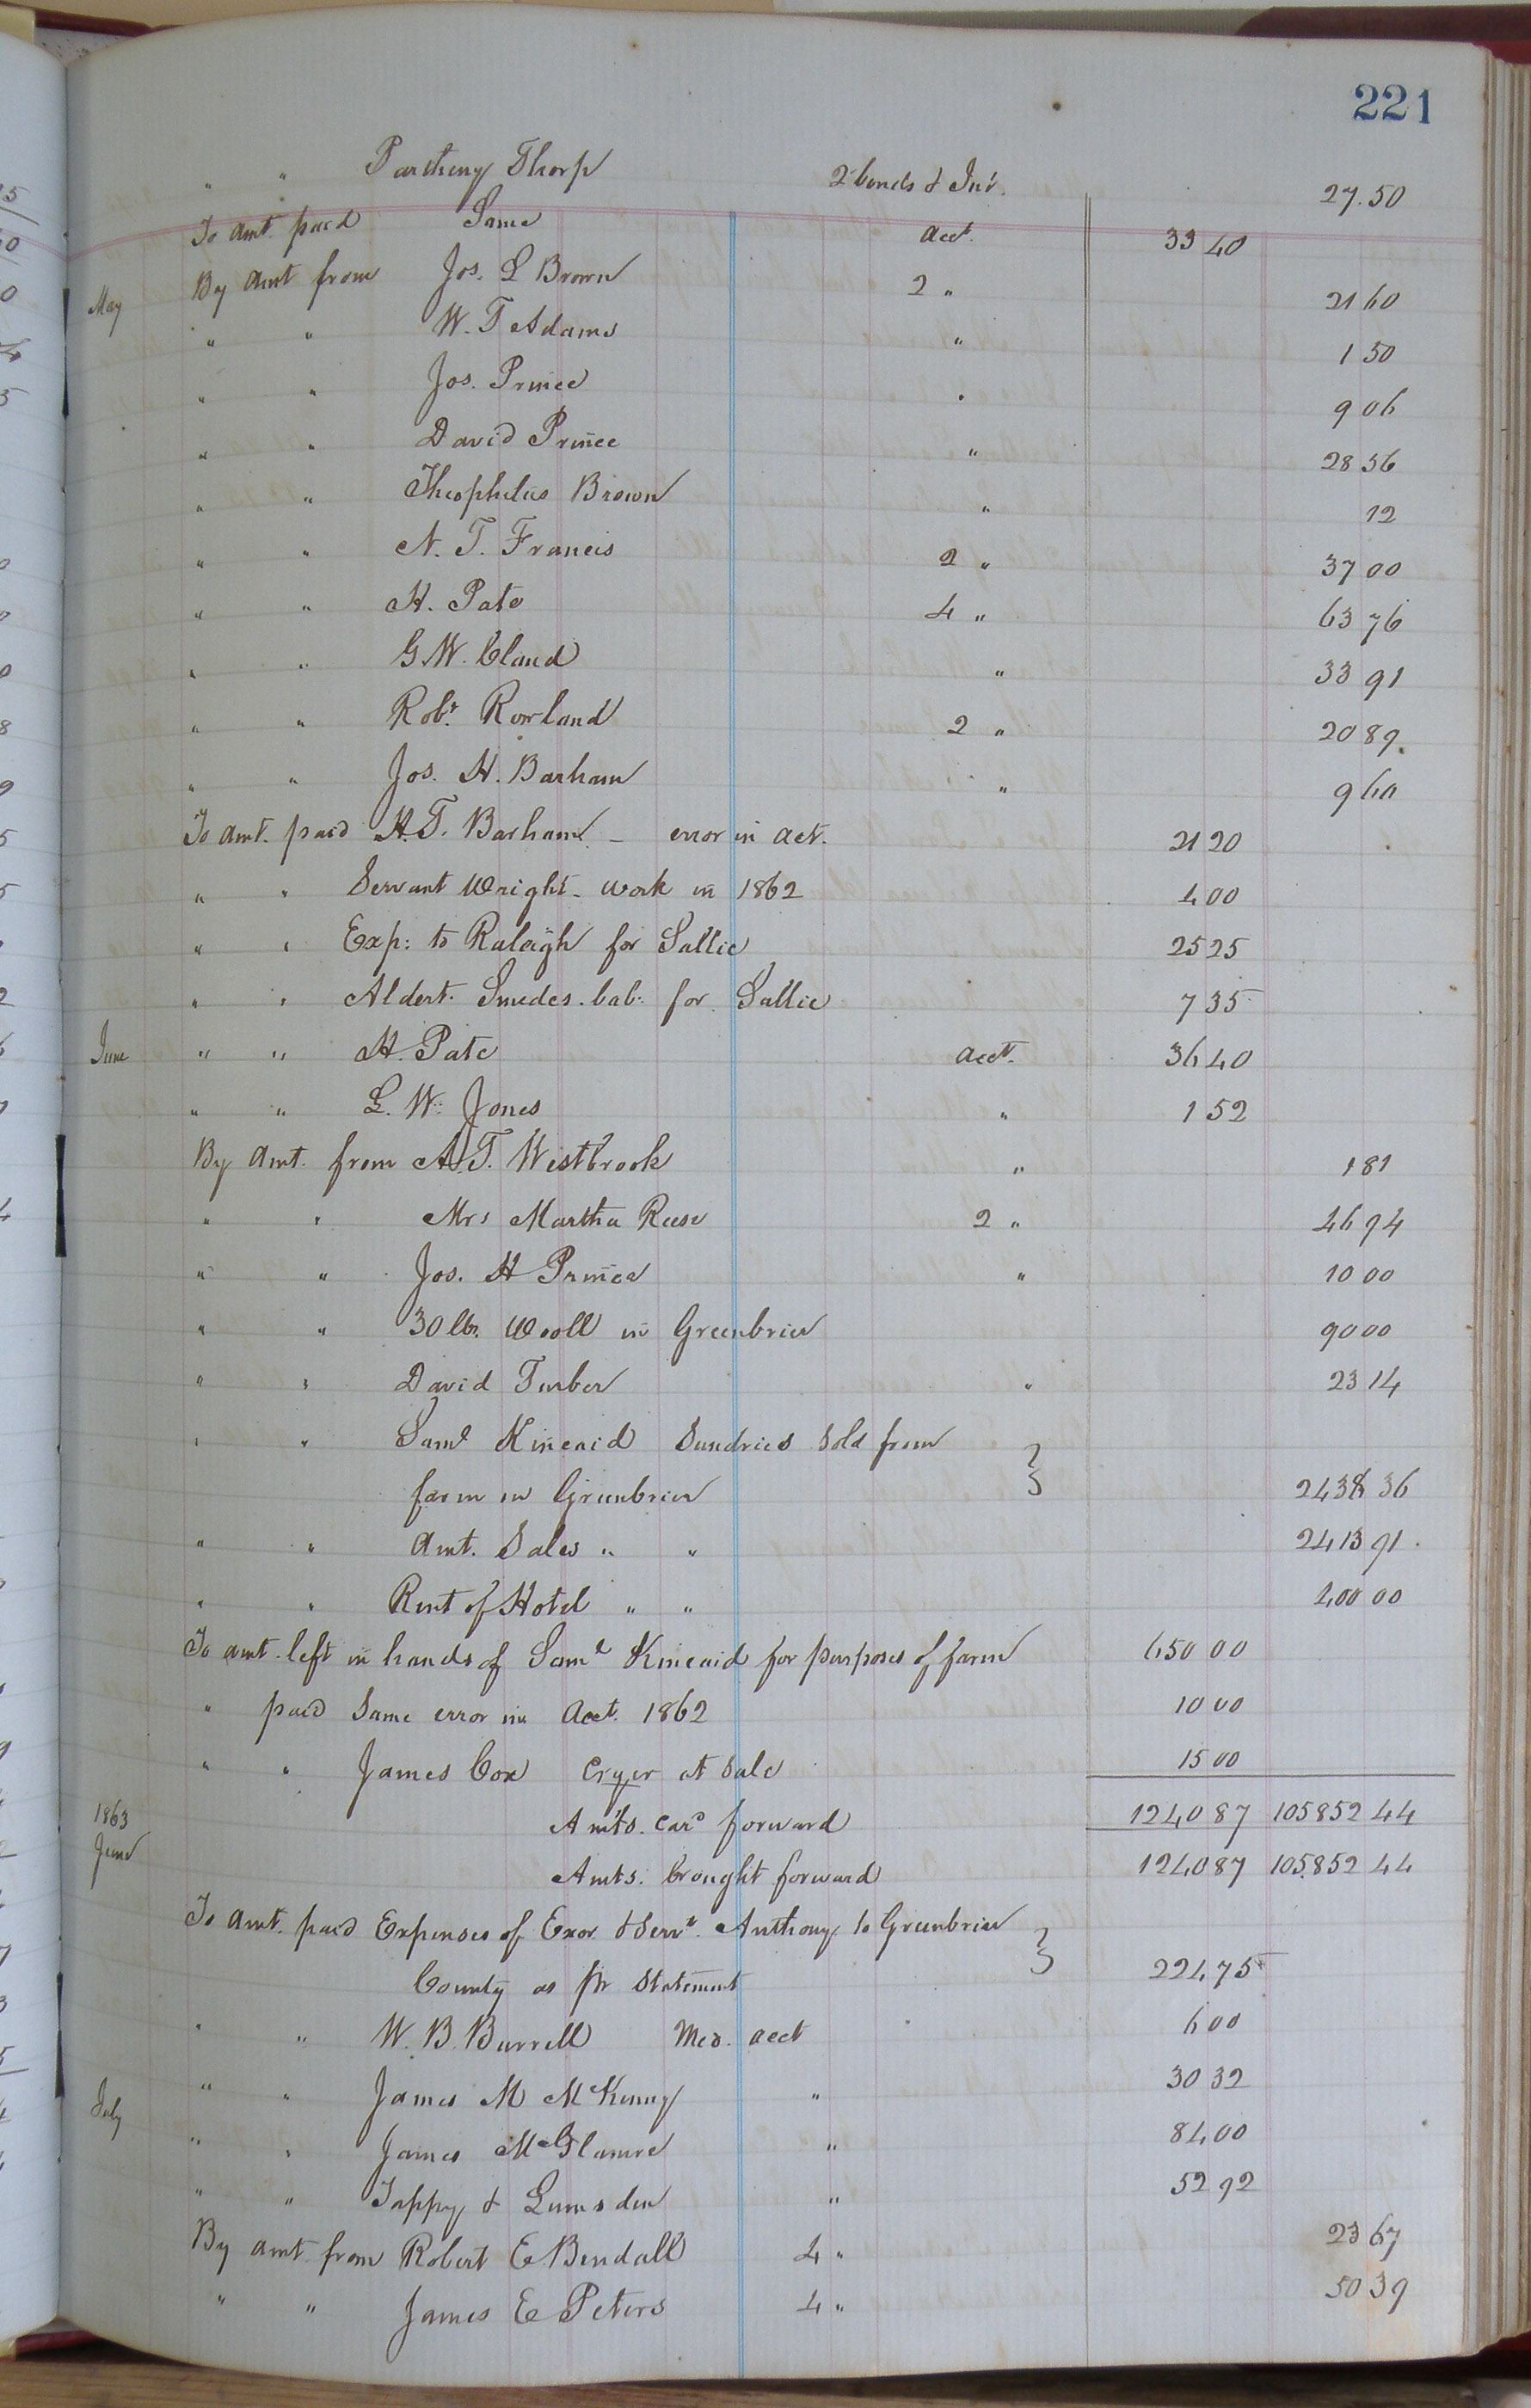 221
" " Partheny Thorp 2 bonds & Int. 27.50
To amt. paid Same acct. 33 40
May By amt from Jos. L Brown 2 " 21 60
" " W. T Adams " 1 50
" " Jos. Prince " 9 06
" " David Prince " 28 36
" " Theophilus Brown " 12
" " N. T. Francis 2 " 37 00
" " H. Pate 4 " 63 76
" " G. W. Claud " 33 91
" " Robt. Rowland 2 " 20 89
" " Jos. H. Barham " 9 60
To amt. paid H. T. Barham - error in act. 21 20
" " Servant Wright - work in 1862 4 00
" " Exp: to Raleigh for Sallie 25 25
" " Aldert. Smedes. bal: for Sallie 7 35
June " " H. Pate acct. 36 40
" " L. W. Jones " 1 52
By amt. from A. T. Westbrook " 1 81
" " Mrs Martha Reese 2 " 46 94
" " Jos. H Prince " 10 00
" " 30 lbs. Wooll in Greenbrier 90 00
" " David Turber " 23 14
" " Saml Kincaid Sundries sold from
farm in Greenbrier 2438 36
" " Amt. Sales " " 2413 91
" " Rent of Hotel " " 400 00
To amt. left in hands of Saml Kincaid for purposes of farm 650 00
" paid Same error in Acct. 1862 10 00
" " James Cox Cryer at sale 15 00
1863 Amts. card forward 1240 87 105852 44
June Amts. brought forward 1240 87 105852 44
To amt. paid Expenses of Exor & Servt. Anthony to Greenbrier
County as pr Statement 224 75
" " W. B. Burrell Med. acct 6 00
July " " James M McKenny " 30 32
" " James McGlamre " 84 00
" " Tappy & Lumsden " 52 92
By amt. from Robert E. Bendall 4 " 23 67
" " James E Peters 4 " 50 39